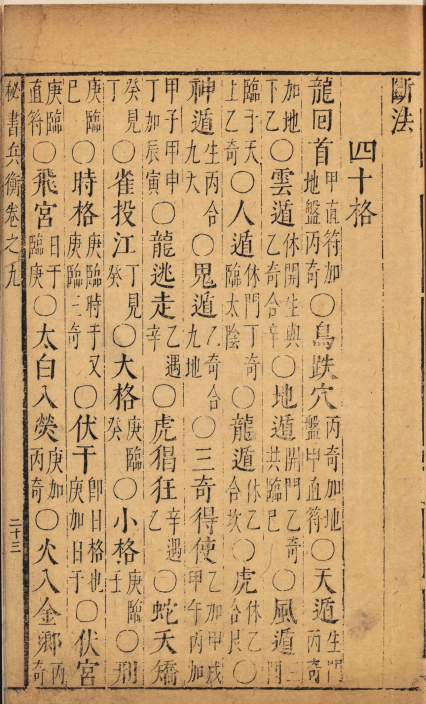 斷法
四十格
龍回首甲直符加地盤丙奇〇鳥跌穴丙奇加地盤甲直符〇天遁生門丙奇
加地下乙〇雲遁休開生與乙奇合辛〇地遁開門乙奇共臨巳〇風遁三門
臨于天上乙奇〇人遁休門丁奇臨太陰〇龍遁休乙合坎〇虎休乙合艮〇
神遁生丙合九天〇鬼遁乙奇合九地〇三奇得使乙加甲戌甲午丙加
甲子甲申丁加辰寅〇龍逃走乙遇辛〇虎猖狂辛遇乙〇蛇夭矯
癸見丁〇雀投江丁見癸〇大格庚臨癸〇小格庚臨壬〇刑
庚臨巳〇時格庚臨時干又庚臨三奇〇伏干卽日格也庚加日干〇伏宮
庚臨直符〇飛宮日干臨庚〇太白入熒庚加丙奇〇火入金鄉丙奇
秘書兵衡卷之九
二十三